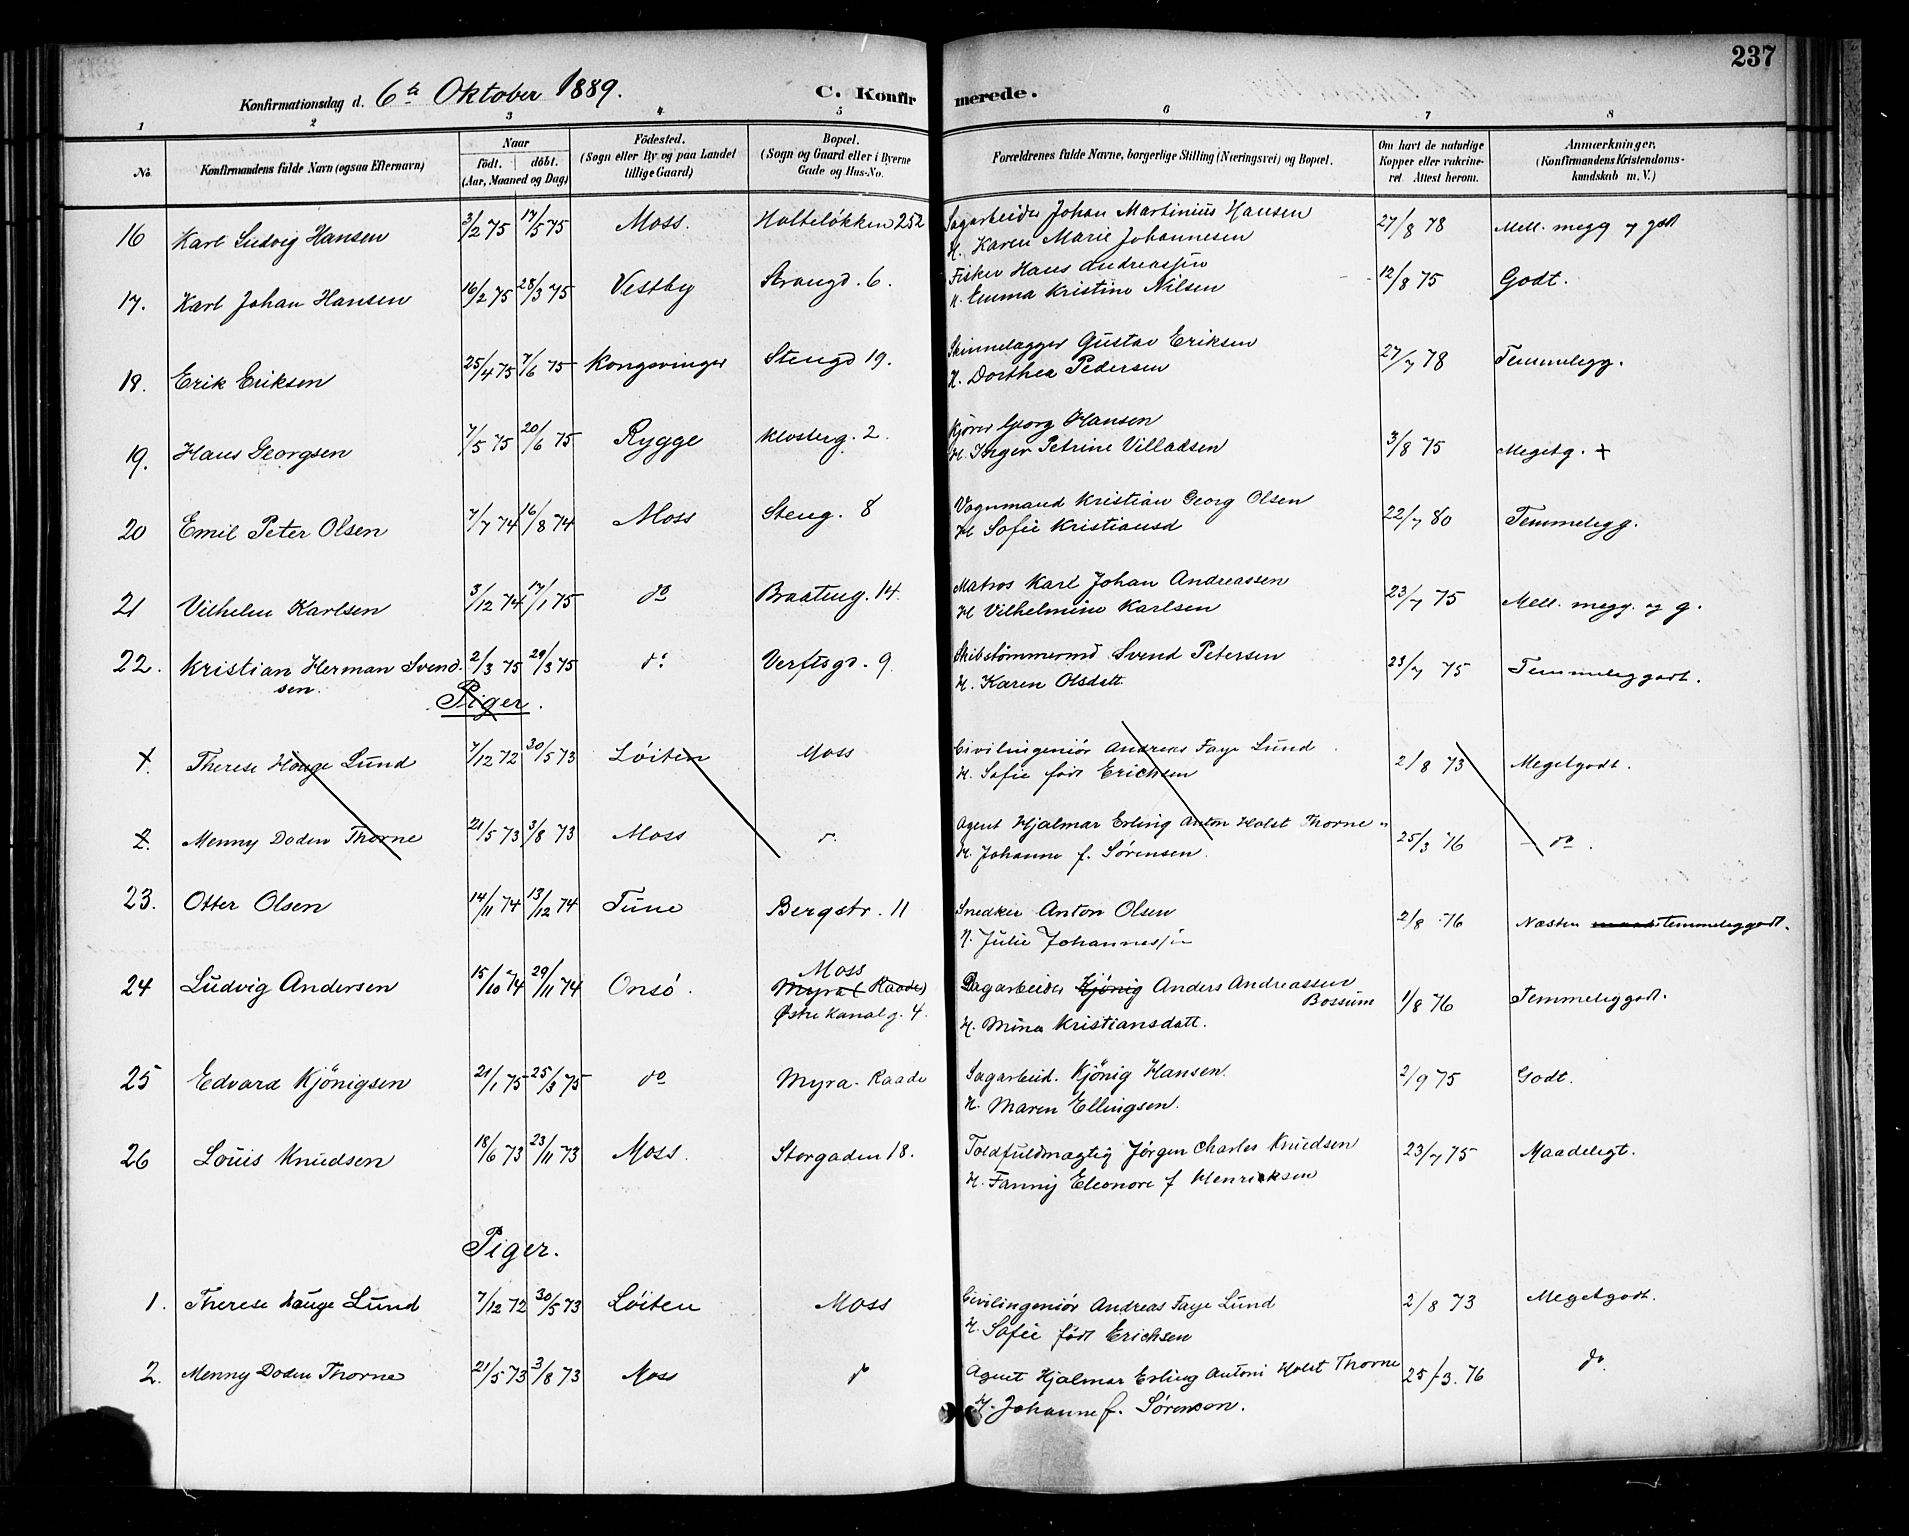 237
Konfirmationsdag d. 6te Oktober 1889. C. Konfirmerede.
1 2 3 4 5 6 7 8
No. Konfirmandens fulde Navn (ogsaa Efternavn) Naar födt. döbt. (Aar, Maaned og Dag) Födested. (Sogn eller By og paa Landet tillige Gaard) Bopæl. (Sogn og Gaard eller i Byerne Gade og Hus-No. Forældrenes fulde Navne, borgerlige Stilling (Næringsvei) og Bopæl. Om havt de naturlige Kopper eller vakcineret Attest herom. Anmærkninger. (Konfirmandens Kristendomskundskab m. V.)
16 Karl Ludvig Hansen 3/2 75 17/5 75 Moss. Holteløkken 252 Sagarbeider Johan Martinius Hansen 27/8 78 Mell. megg og godt
H. Karen Marie Johannesen
17. Karl Johan Hansen 16/2 75 28/3 75 Vestby Strangd. 6. Fisker Hans Andreassen 12/8 75 Godt.
H. Emma Kristine Nilsen
18. Erik Eriksen 25/4 75 7/6 75 Kongsvinger Stengd 19. Skinnelægger Gustav Eriksen 27/7 78 Temmelegg.
H. Dorthea Pedersen
19. Hans Georgsen 7/5 75 20/6 75 Rygge Klosterg. 2. Kjører Georg Hansen 3/8 75 Megetg. +
H. Inger Petrine Villadsen
20 Emil Peter Olsen 7/7 74 16/8 74 Moss Steng. 8 Vognmand Kristian Georg Olsen 22/7 80 Temmelegg.
H Sofie Kristiansd
21 Vilhelm Karlsen 3/12 74 17/1 75 do Braateng. 14. Matros Karl Johan Andreassen 23/7 75 Mell. megg. og g.
H Vilhelmine Karlsen
22. Kristian Herman Svend 2/3 75 29/3 75 do Verftsgd. 9. Skibstømmermd Svend Petersen 23/7 75 Temmeleggodt.
sen. H. Karen Olsdatt.
Piger.
1. Therese Hauge Lund 7/12 72 30/5 73 Løiten Moss Civilingeniør Andreas Faye Lund 2/8 73 Megetgodt.
H. Sofie født Erichsen
2. Menny Doden Thorne 21/5 73 3/8 73 Moss do Agent Hjalmar Erling Anton Holst Thorne 25/3 76 - do.
H. Johanne f. Sørensen.
23. Otter Olsen 14/11 74 13/12 74 Tune Bergstr. 11 Snedker Anton Olsen 2/8 76 Næsten temmeliggodt.
H. Julie Johannessen
Moss
24 Ludvig Andersen 15/10 74 29/11 74 Onsö. Myra (Raade) Dagarbeider Kjønig Anders Andreassen Bossum 1/8 76 Temmeliggodt.
Østre Kanalg. 4. H. Mina Kristiansdatt.
25 Edvard Kjönigsen 21/1 75 25/3 75 do Myra - Raade Sagarbeid. Kjönig Hansen. 2/9 75 Godt.
H. Maren Ellingsen.
26 Louis Knudsen 18/6 73 23/11 73 Moss. Storgaden 18. Toldfuldmægtig Jørgen Charles Knudsen 23/7 75 Maadeligt.
H. Fanny Eleonore f Henricksen
Piger.
1. Therese Hauge Lund 7/12 72 30/5 73 Løiten Moss Civilingeniør Andreas Faye Lund 2/8 73 Megetgodt.
H. Sofie født Erichsen
2. Menny Doden Thorne 21/5 73 3/8 73 Moss do Agent Hjalmar Erling Antoni Holst Thorne 25/3. 76 do
H. Johanne f. Sørensen.